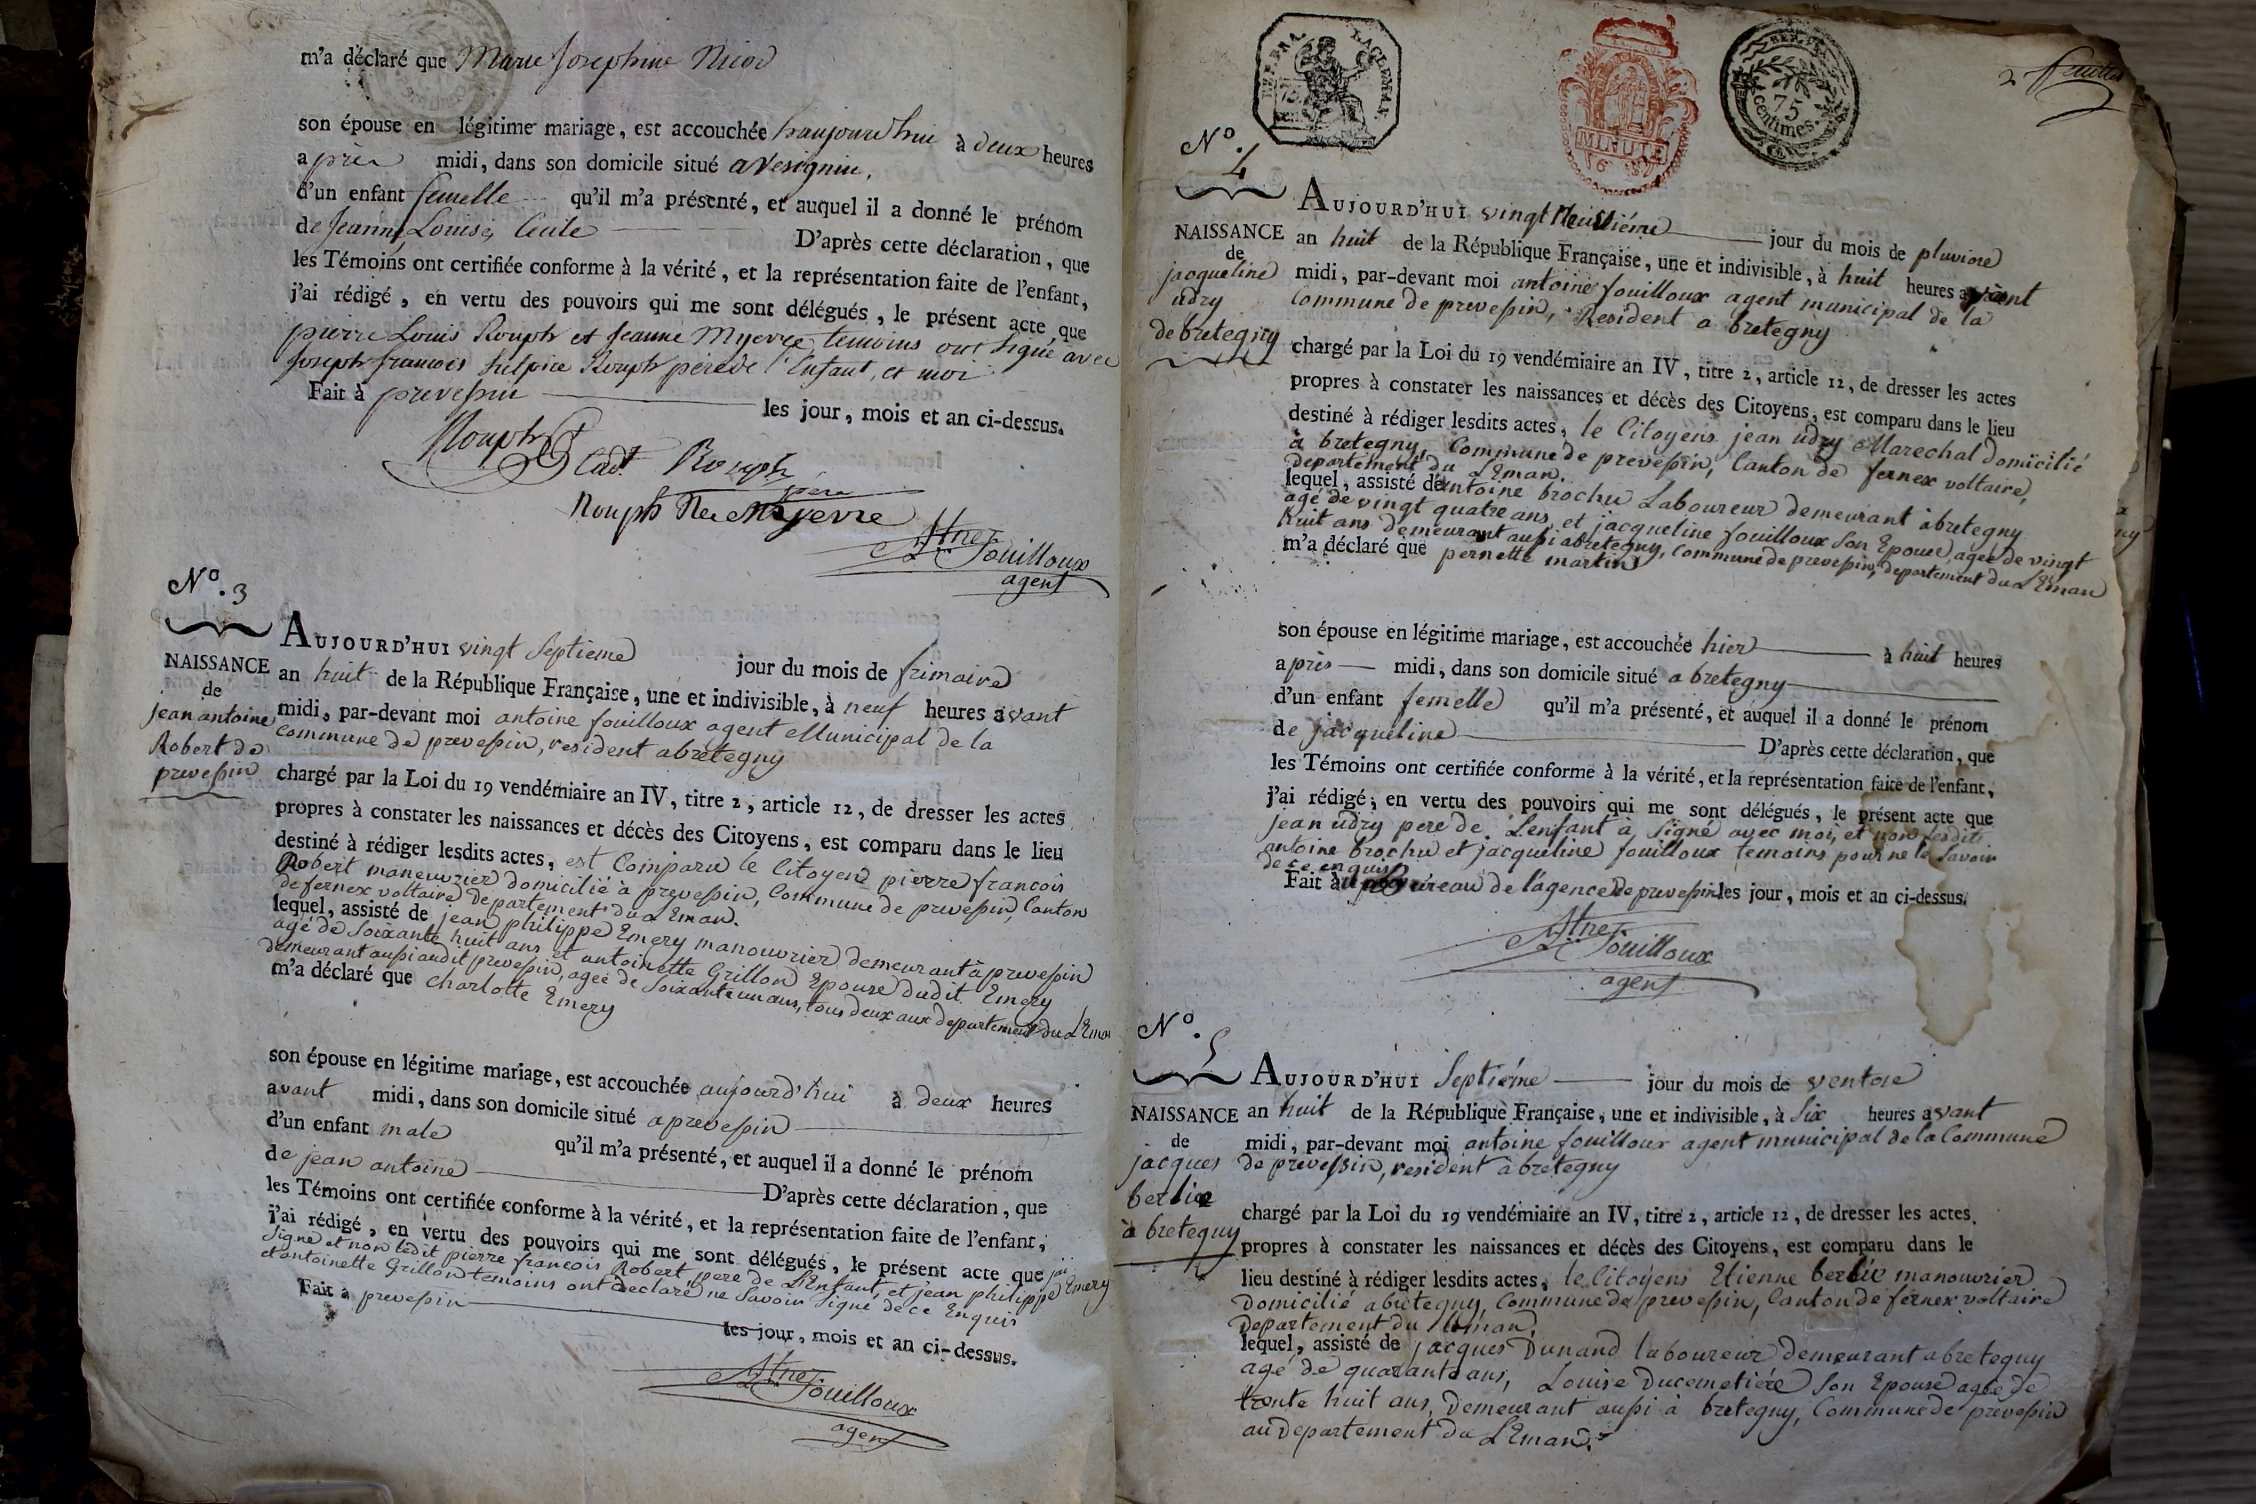 m'a déclaré que Marie Josephine Nicod
son épouse en légitime mariage, est accouchée haujourdhui à deux heures
après midi, dans son domicile situé a Vesignin,
d'un enfant femelle qu'il m'a présenté, et auquel il a donné le prénom
de Jeanne Louise Cecile D'après cette déclaration, que
les Témoins ont certifiée conforme à la vérité, et la représentation faite de l'enfant,
j'ai rédigé, en vertu des pouvoirs qui me sont délégués, le présent acte que
pierre Louis Rouph et Jeanne Myevre temoins ont signé avec
Joseph francois Sulpice Rouph père de l'Enfant, et moi
Fait à prevessin les jour, mois et an ci-dessus.
Rouph Cadt Rouph
père
Rouph Née Myevre
Atne fouilloux
agent
N.º 3
AUJOURD'HUI vingt Septieme jour du mois de frimaire
NAISSANCE
de
jean antoine
Robert de
prevessin
an huit de la République Française, une et indivisible, à neuf heures avant
midi, par-devant moi antoine fouilloux agent Municipal de la
commune de prevessin, resident a bretegny
chargé par la Loi du 19 vendémiaire an IV, titre 2, article 12, de dresser les actes
propres à constater les naissances et décès des Citoyens, est comparu dans le lieu
destiné à rédiger lesdits actes, est Comparu le Citoyen pierre francois
Robert maneuvrier domicilié à prevessin, Commune de prevessin, Canton
de fernex voltaire departement du LEman.
lequel, assisté de jean philippe Emery manouvrier demeurant à prevessin
agé de soixante huit ans et antoinette Grillon Epouse dudit Emery
demeurant aussi audit prevessin, agée de soixante un ans, tous deux aux departement du LEman
m'a déclaré que charlotte Emery
son épouse en légitime mariage, est accouchée aujourd'hui à deux heures
avant midi, dans son domicile situé a prevessin
d'un enfant male qu'il m'a présenté, et auquel il a donné le prénom
de jean antoine D'après cette déclaration, que
les Témoins ont certifiée conforme à la vérité, et la représentation faite de l'enfant,
j'ai rédigé, en vertu des pouvoirs qui me sont délégués, le présent acte que jai
Signé et non ledit pierre francois Robert pere de L'Enfant, et jean philippe Emery
et antoinette Grillon temoins ont declaré ne Savoir Signé de ce Enquis
Fait à prevessin les jour, mois et an ci-dessus.
Atne fouilloux
agent
75
centimes.
MINUTE
2 feuillet
N.º 4
AUJOURD'HUI vingt Neuvième jour du mois de pluviose
NAISSANCE
de
jacqueline
udry
de bretegny
an huit de la République Française, une et indivisible, à huit heures avant
midi, par-devant moi antoine fouilloux agent municipal de la
Commune de prevessin, Resident a bretegny
chargé par la Loi du 19 vendémiaire an IV, titre 2, article 12, de dresser les actes
propres à constater les naissances et décès des Citoyens, est comparu dans le lieu
destiné à rédiger lesdits actes, le Citoyens jean udry Marechal Domicilié
à bretegny, Commune de prevessin, Canton de fernex voltaire,
departement du LEman.
lequel, assisté de antoine brochu Laboureur demeurant à bretegny
agé de vingt quatre ans, et jacqueline fouilloux Son Epouse, agée de vingt
huit ans demeurant aussi abretegny, Commune de prevessin, departement du LEman
m'a déclaré que pernette martin
son épouse en légitime mariage, est accouchée hier à huit heures
après midi, dans son domicile situé a bretegny
d'un enfant femelle qu'il m'a présenté, et auquel il a donné le prénom
de jacqueline D'après cette déclaration, que
les Témoins ont certifiée conforme à la vérité, et la représentation faite de l'enfant,
j'ai rédigé, en vertu des pouvoirs qui me sont délégués, le présent acte que
jean udry pere de Lenfant à Signé avec moi, et non lesdits
antoine brochu et jacqueline fouilloux temoins pour ne le Savoir
de ce enquis
Fait à bureau de l'agence de prevessin les jour, mois et an ci-dessus.
Atne fouilloux
agent
N.º 5
AUJOURD'HUI Septiéme jour du mois de ventose
NAISSANCE
de
jacques
berlie
à bretegny
an huit de la République Française, une et indivisible, à Six heures avant
midi, par-devant moi antoine fouilloux agent municipal de la Commune
de prevessin, resident à bretegny
chargé par la Loi du 19 vendémiaire an IV, titre 2, article 12, de dresser les actes
propres à constater les naissances et décès des Citoyens, est comparu dans le
lieu destiné à rédiger lesdits actes, le Citoyens Etienne berlie manouvrier
Domicilié abretegny, Commune de prevessin, Canton de fernex voltaire
Departement du Léman,
lequel, assisté de jacques Dunand laboureur demeurant abretegny
agé de quarante ans, Louise Ducometiére Son Epouse agée de
trente huit ans, Demeurant aussi à bretegny, Commune de prevessin
au Departement du LEman.